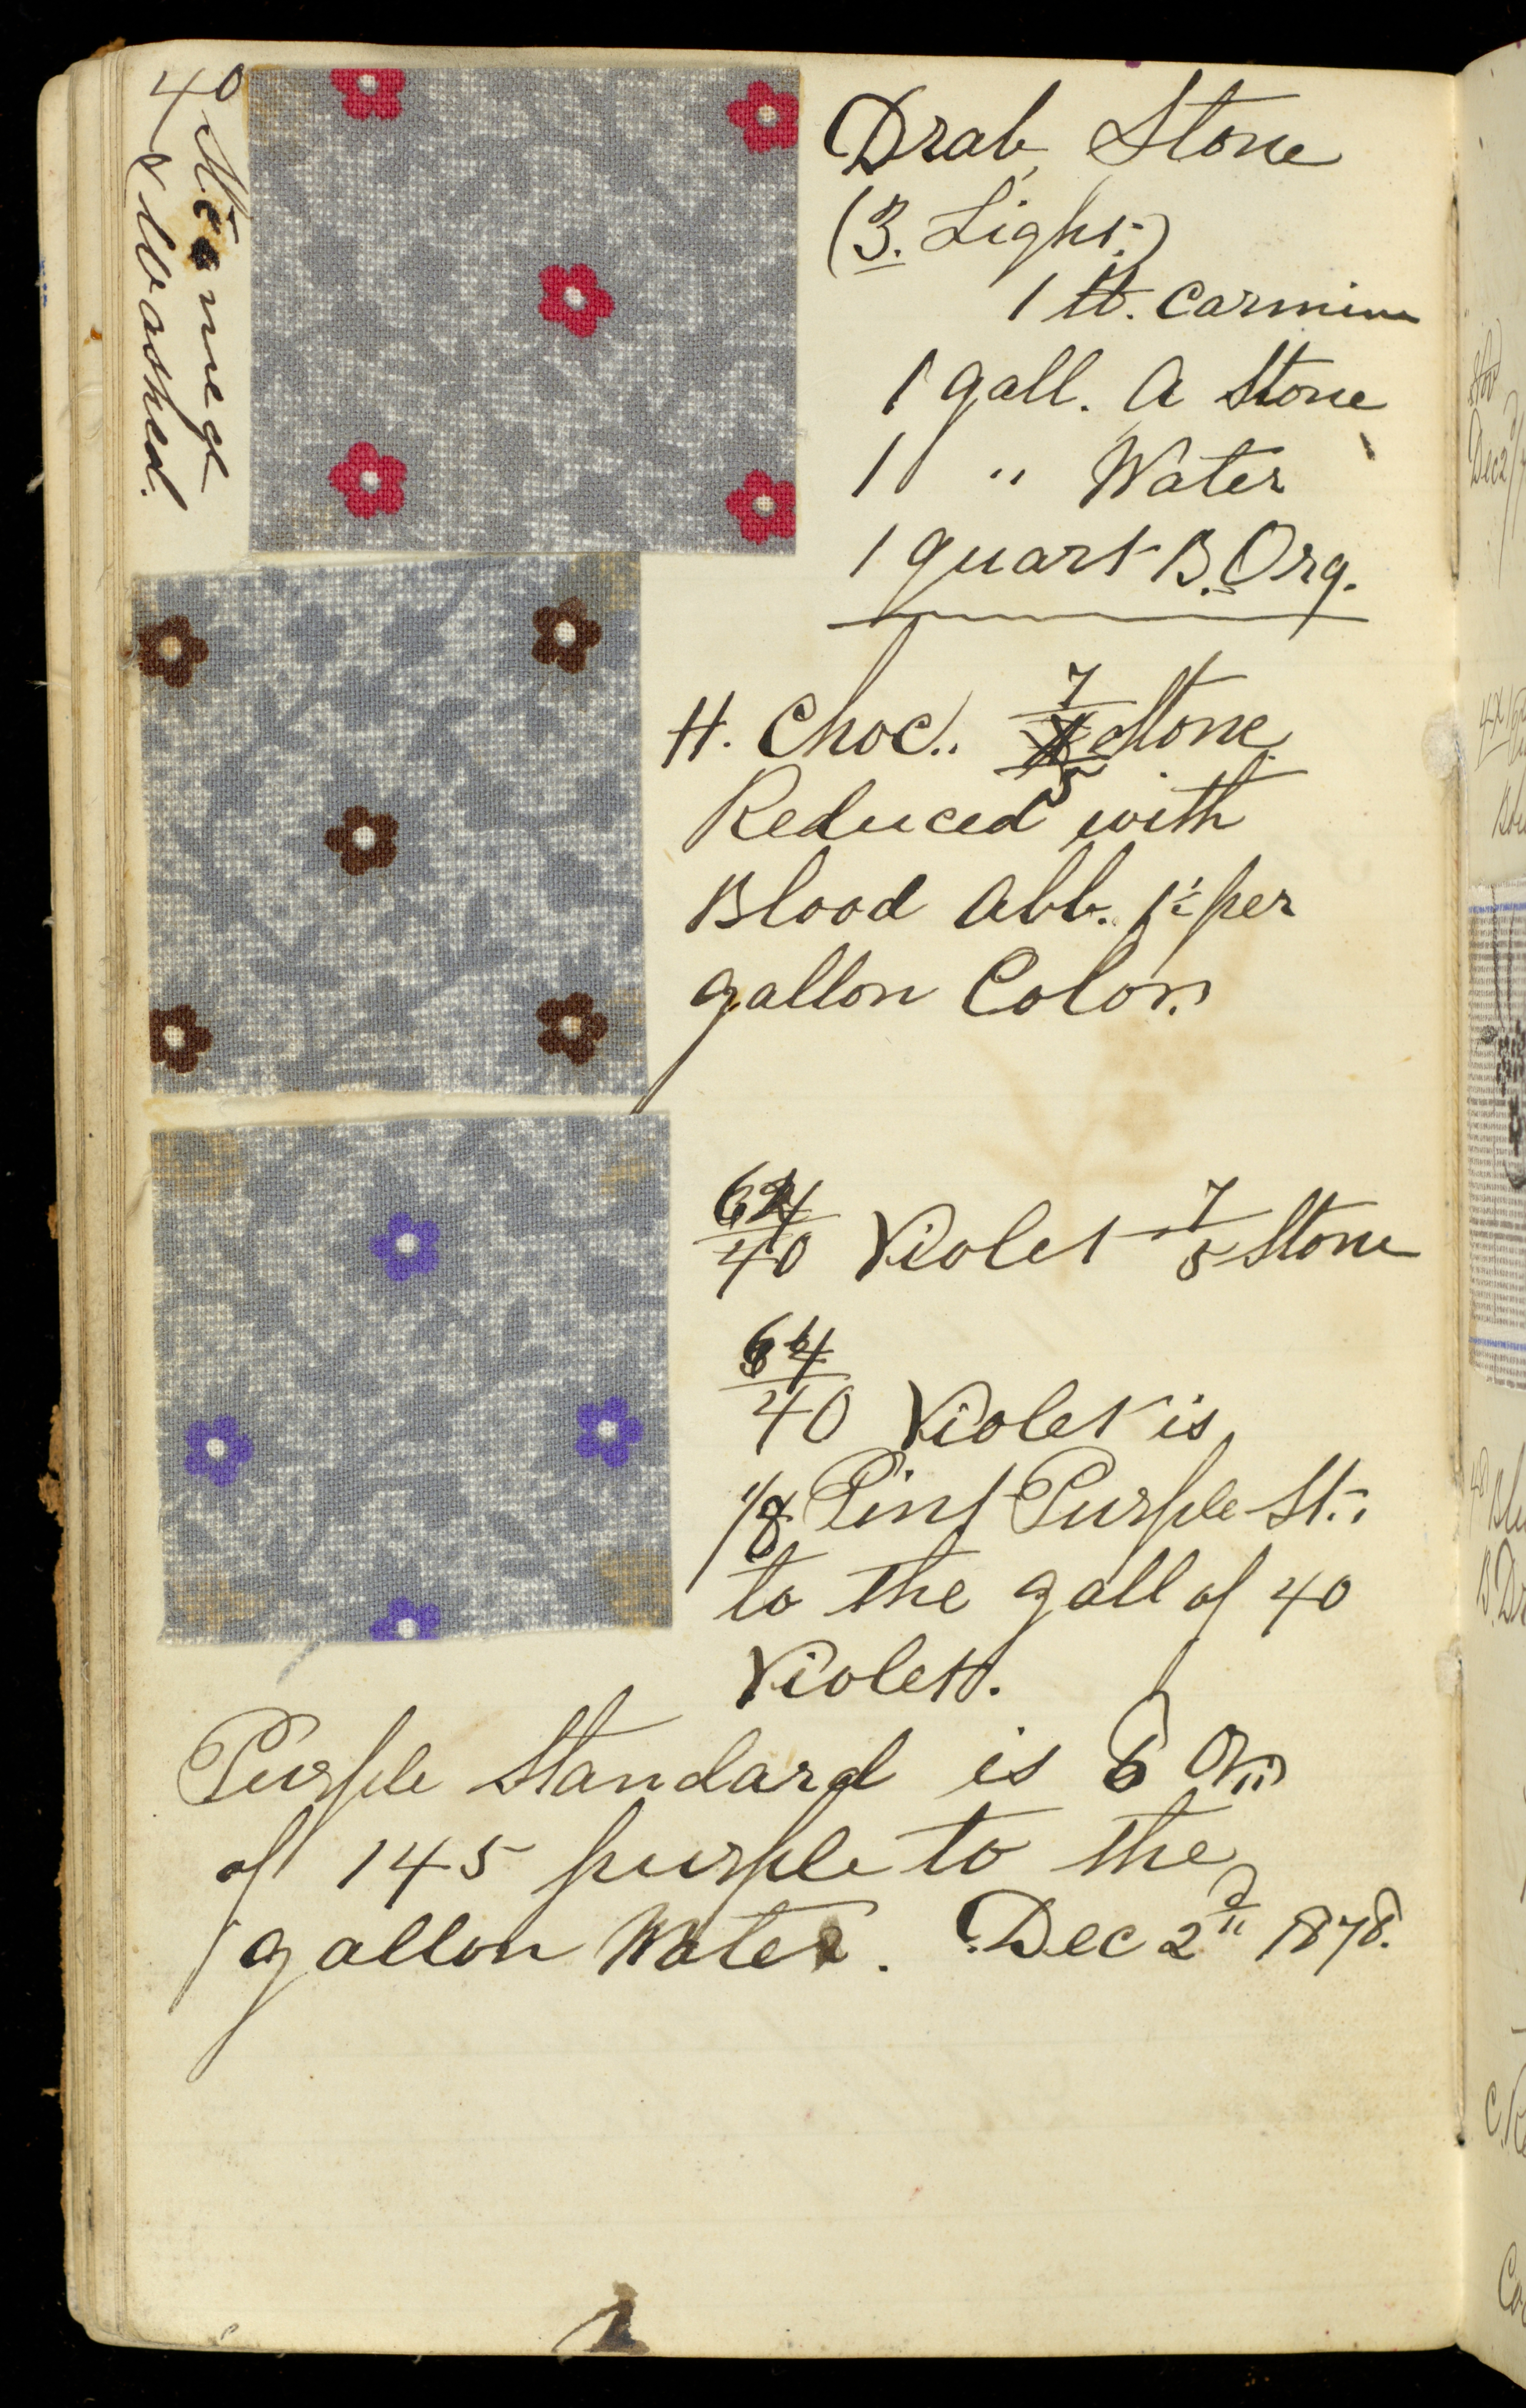 40
Steamed
& Washed.
Drab Stone
(3. Light.)
1 lb. Carmine
1 gall. A Stone
1 " Water
1 quart B. Org.
H. Choc. 7/5 Stone
Reduced with
Blood Alb. per
gallon Color.
40 Violet 7/5 Stone
64/40 Violet is
1/8 Pint Purple St.
to the gall of 40
Violet.
Purple Standard is 6 Oz
of 145 purple to the
gallon Water. Dec 2nd 1878.